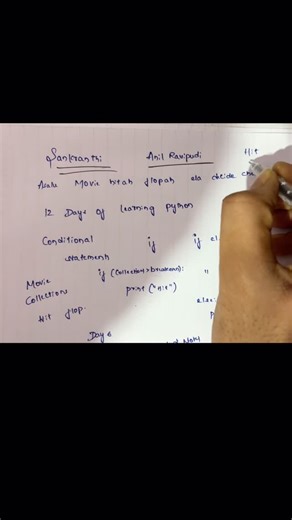 Sankranthi Anil Ravipudi Hit
Asalu Movie hitah flopah ela decide che
12 Days of learning python
Conditional if if el
statement
Movie if (collections > breakeven): "
Collections print ("Hit")
Hit flop. else:
Day 6